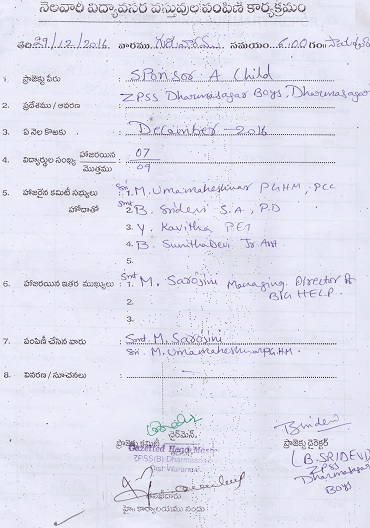 నెలవారీ విద్యావసర వస్తువుల పంపిణీ కార్యక్రమం
తేది: 29/12/2016 వారము గురువారము సమయం 6.00 గం॥
1. ప్రాజెక్టు పేరు : Sponsor A Child
2. ప్రదేశము / ఆవరణ : ZPSS Dharmasagar Boys, Dharmasagar
3. ఏ నెల కొఱకు : December - 2016
4. విద్యార్థుల సంఖ్య హాజరయిన : 07
మొత్తము 09
5. హాజరైన కమిటీ సభ్యులు : Sri 1. M. Umamaheshwar PGHM, PCC
హోదాతో Smt 2. B. Sridevi S.A, P.D
3. Y. Kavitha PET
4. B. Sunitha Devi Jr. Asst
5.
6. హాజరయిన ఇతర ముఖ్యులు : Smt 1. M. Sarojini Managing Director of
BIG HELP.
2.
3.
7. పంపిణీ చేసిన వారు : Smt. M. Sarojini
Sri. M. Umamaheshwar PGHM.
8. వివరణ / సూచనలు :
చైర్మెన్.
ప్రాజెక్టు కమిటీ
Gazetted Head Master
ZPSS(B) Dharmasagar
Dist Warangal.
ప్రాజెక్టు డైరెక్టర్
(B. SRIDEVI)
ZPSS
Dharmasagar
Boys